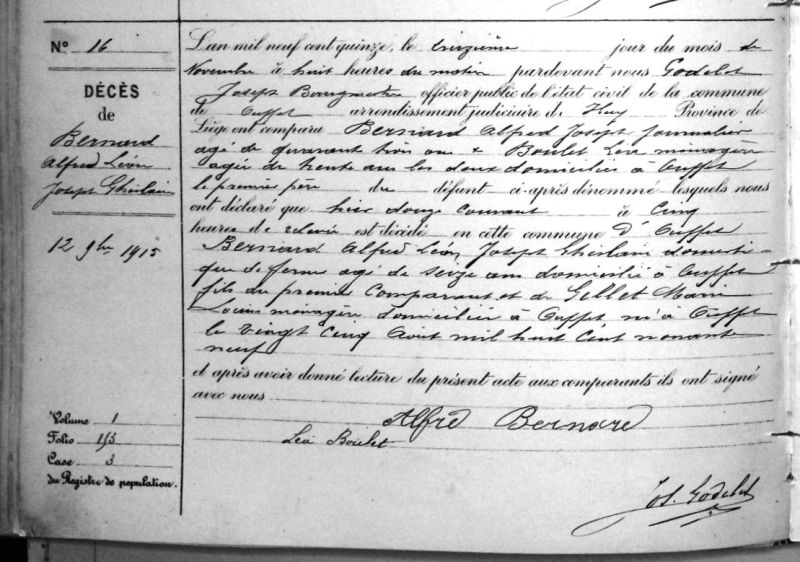 N° 16
DÉCÈS
de
Bernard
Alfred Léon
Joseph Ghislain
12 9bre 1915
Volume 1
Folio 153
Case 3
du Registre de population.
L'an mil neuf cent quinze, le treizième jour du mois de
Novembre à huit heures du matin pardevant nous Godelet
Joseph Bourgmestre officier public de l'état civil de la commune
de Ouffet arrondissement judiciaire de Huy Province de
Liége ont comparu Bernard Alfred Joseph journalier
agé de quarante trois ans & Boulet Léa ménagère
agée de trente ans les deux domiciliés à Ouffet
le premier père du défunt ci-après dénommé lesquels nous
ont déclaré que hier douze courant à cinq
heures de relevée est décédé en cette commune d'Ouffet
Bernard Alfred Léon Joseph Ghislain domesti-
que de ferme agé de seize ans domicilié à Ouffet
fils du premier comparant et de Gillet Marie
Louise ménagère domiciliée à Ouffet né à Ouffet
le vingt cinq Août mil huit cent nonante
neuf
et après avoir donné lecture du présent acte aux comparants ils ont signé
avec nous
Alfred Bernard
Léa Boulet
Jos. Godelet